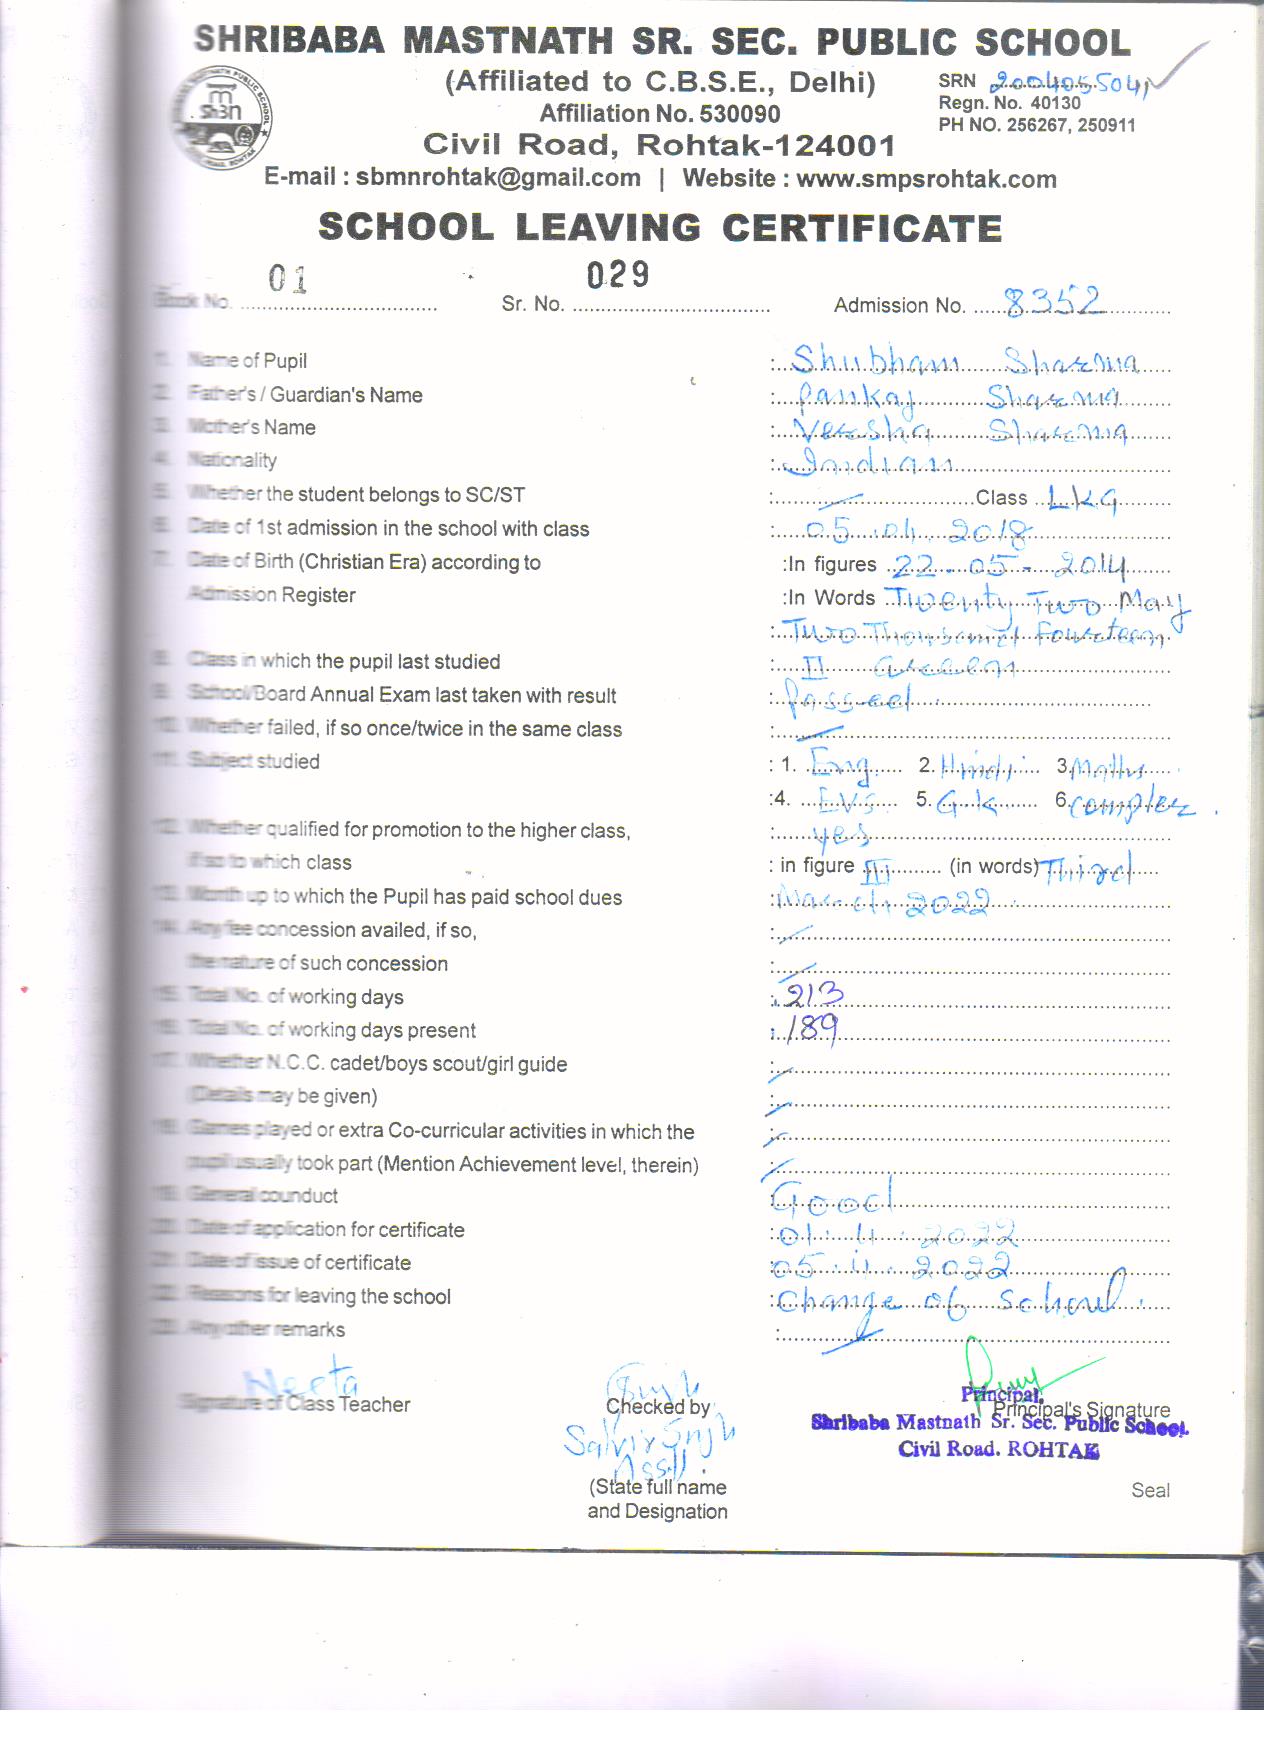 SHRIBABA MASTNATH SR. SEC. PUBLIC SCHOOL
(Affiliated to C.B.S.E., Delhi)
SRN
Affiliation No. 530090
Regn. No. 40130
Civil Road, Rohtak-124001
PH NO. 256267, 250911
E-mail : sbmnrohtak@gmail.com | Website : www.smpsrohtak.com
SCHOOL LEAVING CERTIFICATE
Book No. 01 Sr. No. 029 Admission No. 8352
1. Name of Pupil : Shubham Sharma
2. Father's / Guardian's Name : Pankaj Sharma
3. Mother's Name : Versha Sharma
4. Nationality : Indian
5. Whether the student belongs to SC/ST : Class LKG
6. Date of 1st admission in the school with class : 05.04.2018
7. Date of Birth (Christian Era) according to :In figures 22-05-2014
Admission Register :In Words Twenty Two May
: Two Thousand Fourteen
8. Class in which the pupil last studied : II Green
9. School/Board Annual Exam last taken with result : Passed
10. Whether failed, if so once/twice in the same class :
11. Subject studied : 1. Eng. 2. Hindi 3. Maths
:4. EVS 5. G.K 6.
12. Whether qualified for promotion to the higher class, : yes
if so to which class : in figure III (in words) Third
13. Month up to which the Pupil has paid school dues : March 2022
14. Any fee concession availed, if so, :
the nature of such concession :
15. Total No. of working days : 213
16. Total No. of working days present : 189
17. Whether N.C.C. cadet/boys scout/girl guide :
(Details may be given) :
18. Games played or extra Co-curricular activities in which the :
pupil usually took part (Mention Achievement level, therein) :
19. General counduct : Good
20. Date of application for certificate : 01.4.2022
21. Date of issue of certificate : 05.4.2022
22. Reasons for leaving the school : Change of School.
23. Any other remarks :
Neeta
Signature of Class Teacher
Checked by
(State full name
and Designation
Principal's Signature
Principal.
Shribaba Mastnath Sr. Sec. Public School.
Civil Road. ROHTAK
Seal